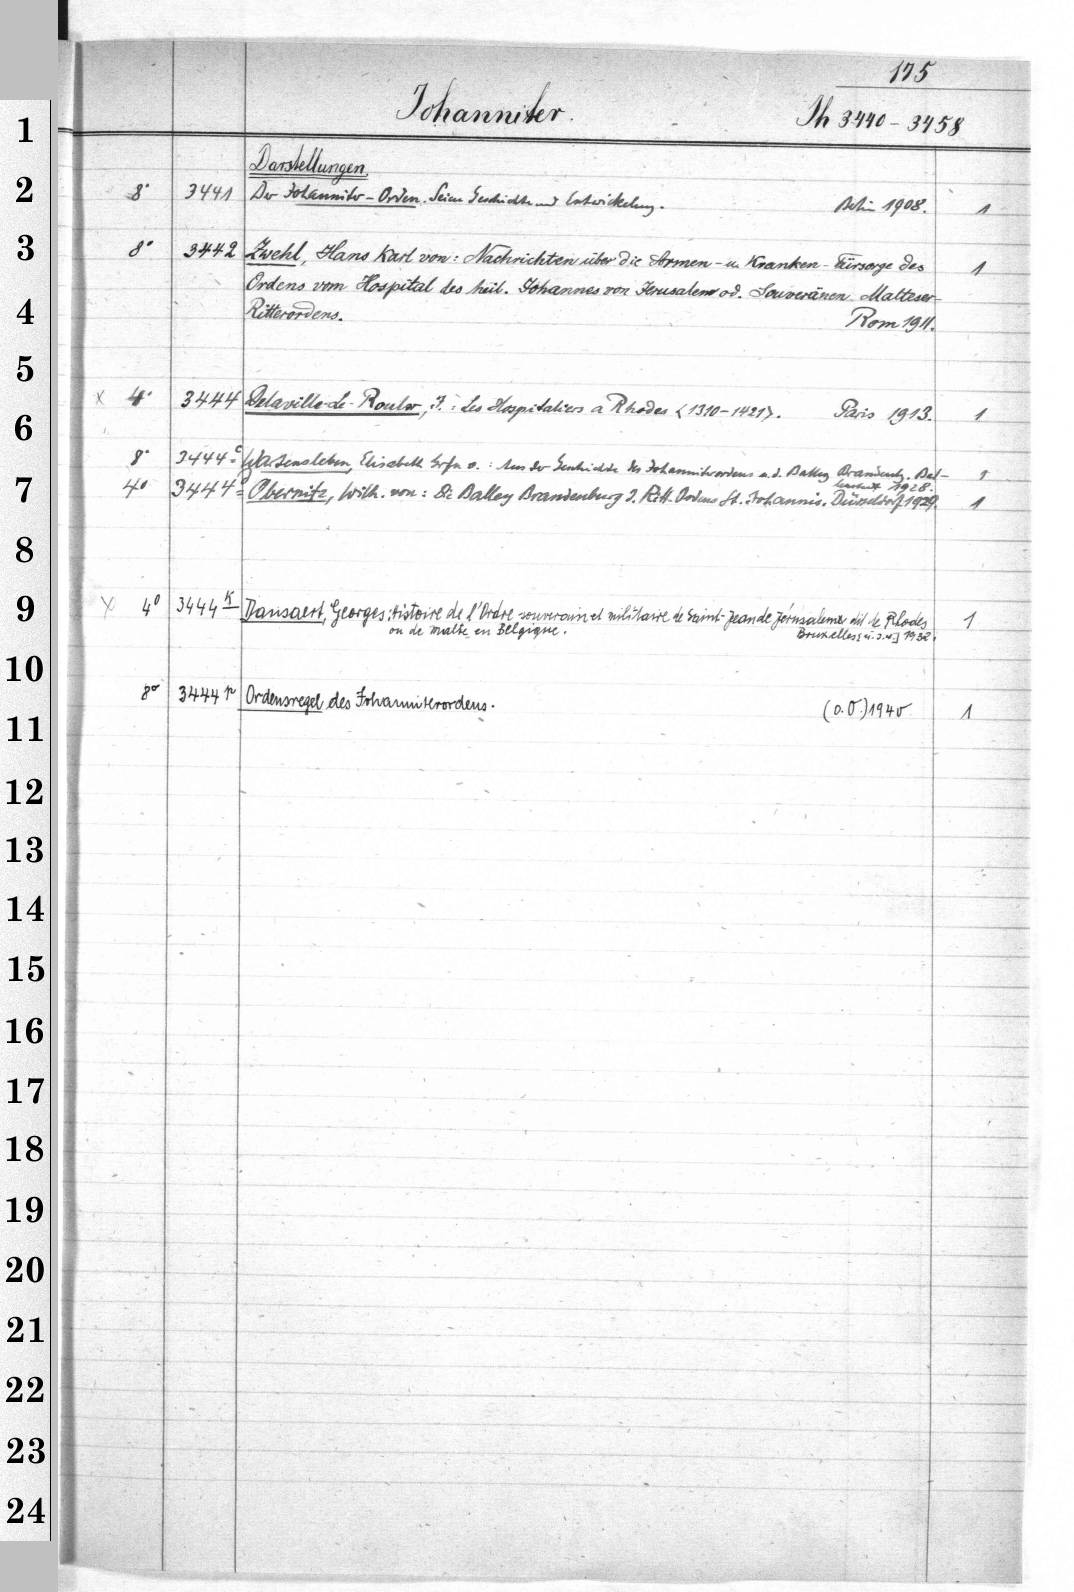 175
Johanniter. Th 3440-3458
1
Darstellungen.
2 8° 3441 Der Johanniter-Orden. Seine Geschichte und Entwickelung. Berlin 1908. 1
3 8° 3442 Zwehl, Hans Karl von: Nachrichten über die Armen- u. Kranken-Fürsorge des 1
Ordens vom Hospital des heil. Johannes von Jerusalem od. Souveränen Malteser-
4 Ritterordens. Rom 1911.
5
x 4° 3444 Delaville-Le-Roulx, J.: Les Hospitaliers a Rhodes <1310-1421>. Paris 1913. 1
6
8° 3444 c Wartensleben, Elisabeth Gräfin v.: Aus der Geschichte des Johanniterordens u. d. Balley Brandenbg. 1
1928.
7 4° 3444 Obernitz, Wilh. von: Die Balley Brandenburg d. Ritt. Ordens St. Johannis. Düsseldorf 1929. 1
8
9 x 4° 3444 K Dansaert, Georges: Histoire de l'Ordre souverain et militaire de Saint-Jean de Jérusalem dit de Rhodes 1
ou de Malte en Belgique. Bruxelles [u.a.] 1932.
10
8° 3444 r Ordensregel des Johanniterordens. (o.O.) 1940 1
11
12
13
14
15
16
17
18
19
20
21
22
23
24